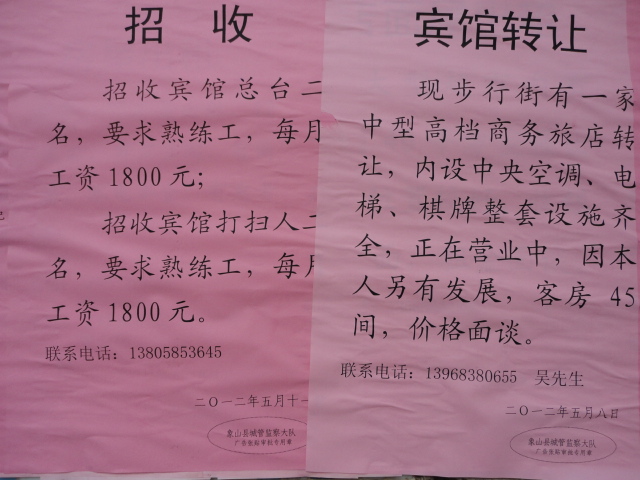 招 收
招收宾馆总台二
名，要求熟练工，每月
工资1800元；
招收宾馆打扫人二
名，要求熟练工，每月
工资1800元。
联系电话：13805853645
二〇一二年五月十一
象山县城管监察大队
广告张贴审批专用章
宾馆转让
现步行街有一家
中型高档商务旅店转
让，内设中央空调、电
梯、棋牌整套设施齐
全，正在营业中，因本
人另有发展，客房 45
间，价格面谈。
联系电话：13968380655 吴先生
二〇一二年五月八日
象山县城管监察大队
广告张贴审批专用章